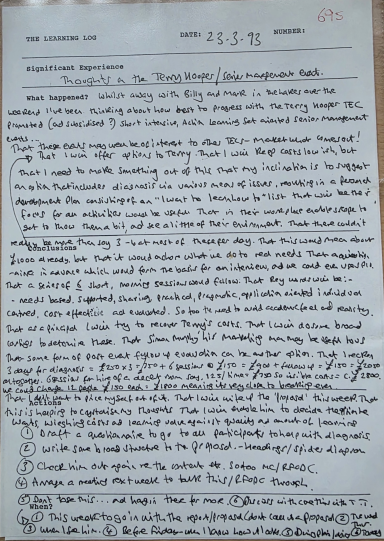 695
THE LEARNING LOG DATE: 23-3-93 NUMBER:
Significant Experience
Thoughts on the Terry Hooper / Senior Management Event.
What happened? Whilst away with Billy and Mark in the lakes over the
weekend I've been thinking about how best to progress with the Terry Hooper TEC
promoted (ad subsidised?) short intensive, Action Learning Set oriented Senior management
events.
That these events may well be of interest to other TECs - market what comes out!
That I will offer options to Terry. That I will keep costs lowish, but
that I need to make something out of this. That my inclination is to suggest
an option that includes diagnosis via various means of issues, resulting in a personal
development Plan consisting of an "I want to learn how to" list that will be their
focus for all activities would be useful. That in their workplace enables people to
get to know them a bit, and see a little of their environment. That there couldn't
really be more than say 3-4 at most of these per day. That this would mean about
Conclusions
£1000 already, but that it would anchor what we do to real needs. That a question
-naire in advance which would form the basis for an interview, ad we could even
That a series of 6 short, morning sessions would follow. That key words will be:-
- needs based, supported, sharing, practical, pragmatic, application oriented individual
centred, cost effective ad evaluated. So too the need to avoid academic feel ad reality.
That as a principal I will try to recover Terry's costs. That I will do some broad
costings to determine these. That Simon Murphy his marketing man may be useful too
That some form of post event follow up evaluation can be another option. That I reckon
3 days for diagnosis = £250 x 3 = £750 + 6 sessions @ £150 = £900 + follow up = £150 = £2000
altogether.
That I don't want to price myself out of it. That I will write up the 'proposal' this week. That
Actions
this is helping to capitalise my thoughts. That I will enable him to decide the option he
wants, weighing costs ad learning value against quality ad amount of learning
① Draft a questionnaire to go to all participants to help with diagnosis.
② Write some broad structure to the proposal - headings / spider diagram
③ Check him out again re the content etc. So too MC/RFODC.
④ Arrange a meeting next week to talk this / RFODC through.
⑤ Don't lose this... ad hang in there for more. ⑥ Discuss with
When?
① This week to go in with the report/proposal (don't call it a proposal) ②
③ When I see him. ④ Before Friday - when I know how it looks. ⑤